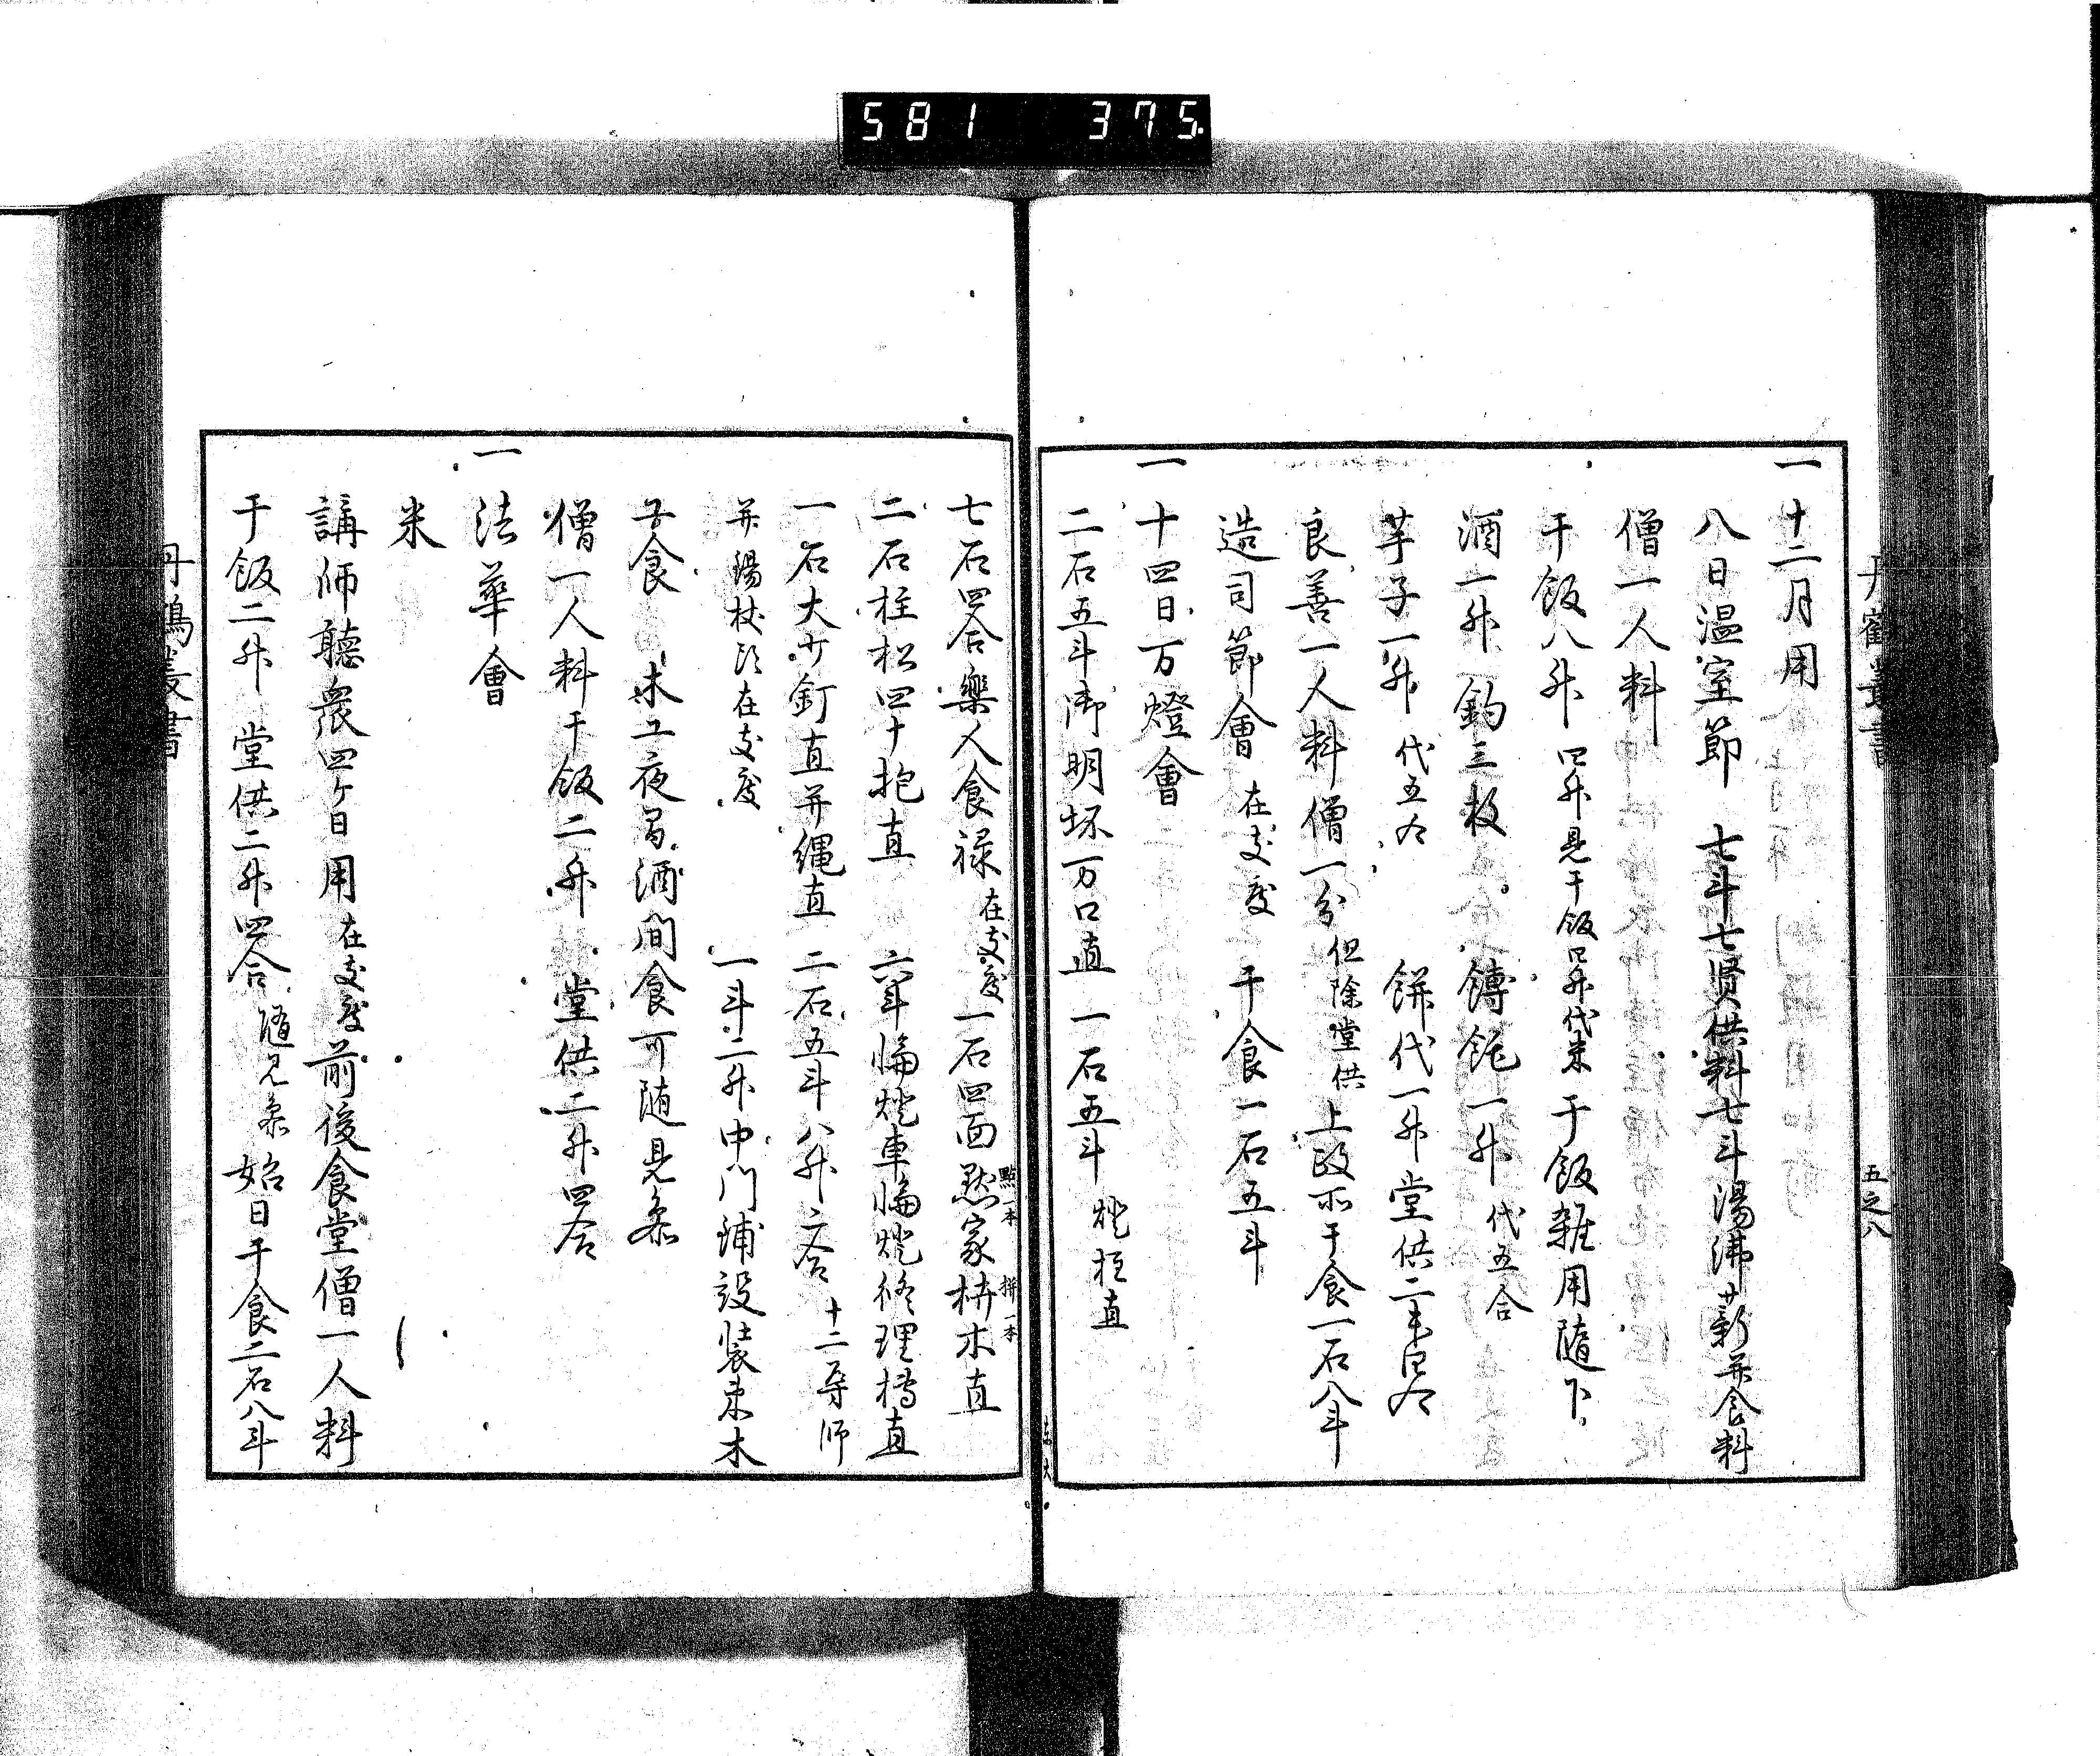 581 375
一十二月用
八日温室節 七斗七賢供料七斗湯沸薪并食料
僧一人料
干飯八升 四升見干飯四升代米 干飯雜用隨下
酒一升 鈎三枚 餺飩一升 代五合
芋子一升 代五合 餅代一升堂供二升四合
良善一人料僧一分 但除堂供 上政所干食一石八斗
造司節會 在支度 干食一石五斗
一十四日万燈會
二石五斗御明坏一万口直一石五斗 燈柱直
丹鶴叢書
五之八
七石四合樂人食禄 在支度 一石四面
點一本
拼一本
家拼木直
二石柱松四十抱直 六斗輪燈車輪燈修理樽直
一石大少釘直并縄直 二石五斗八升六合 十二導師
并湯杖 在支度 一斗二升中門鋪設装束木
子食 木工夜 酒間食可随見参
僧一人料干飯二升 堂供二升四合
一法華會
米
講師聽衆四ケ日用 在支度 前後食堂僧一人料
干飯二升 堂供二升四合 随見参 始日干食二石八斗
丹鶴叢書